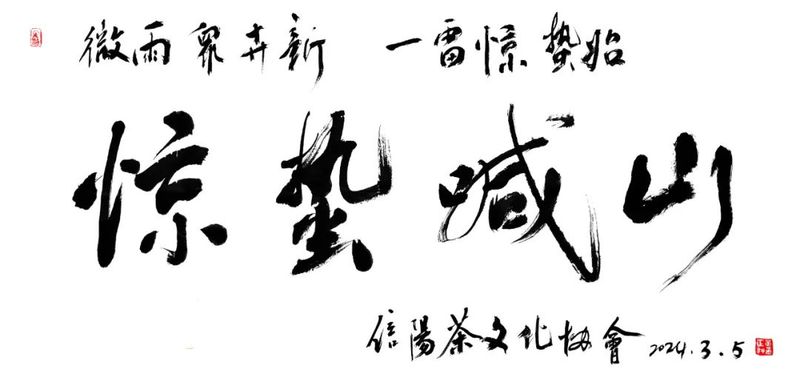 微雨眾卉新 一雷惊蛰始
惊蛰喊山
信陽茶文化协會 2024.3.5